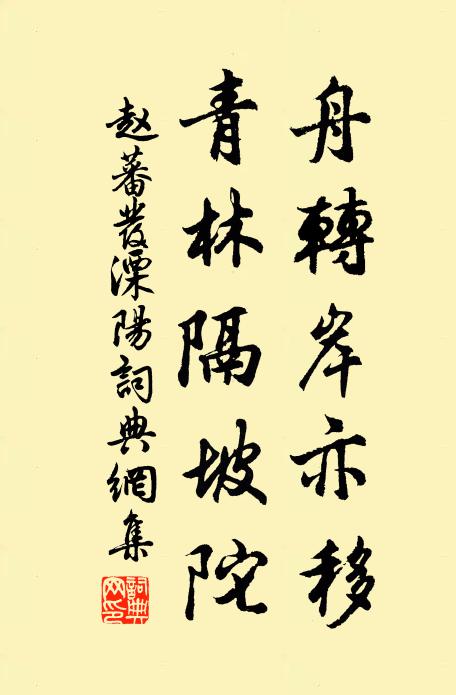 舟轉岸亦移
青林隔坡陀
赵蕃發溧陽詞典網集
詞典网印